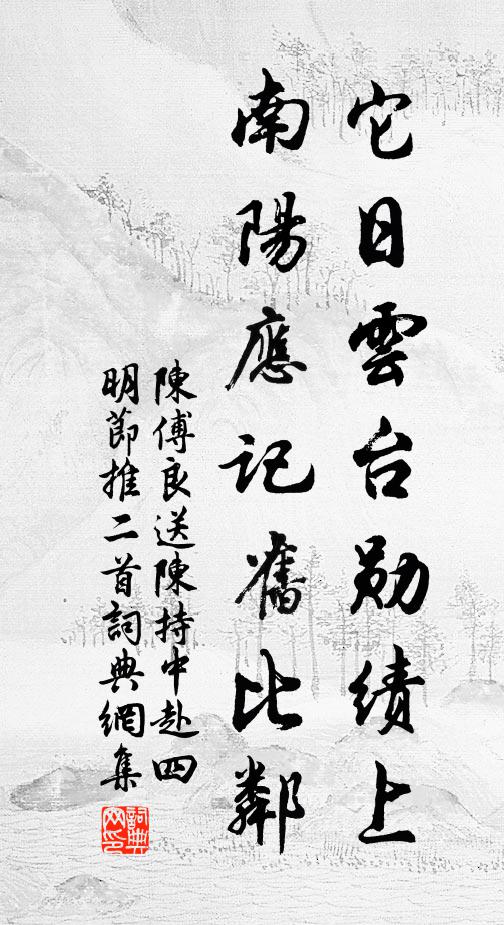 它日雲台勛績上
南陽應記舊比鄰
陳傅良送陳持中赴四
明節推二首詞典網集
詞典網印